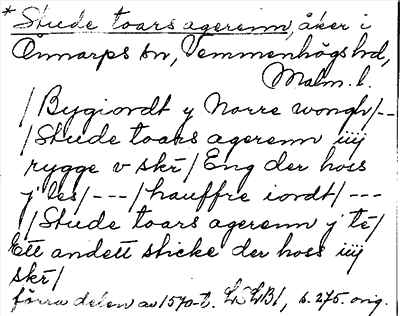 * Stude toars agerenn, åker i
Önnarps sn, Vemmenhögs hd,
Malm. l.
/ Bygiordt y Norre wongh/--
/Stude toars agerenn iiij
rygge v skr̄/ Eng der hoss
j les/---/hauffre iordt/---
/Stude toars agerenn j te/
Ett andett sticke der hoss iiij
skr̄/
förra delen av 1570-t. LSLB1, s. 275. orig.